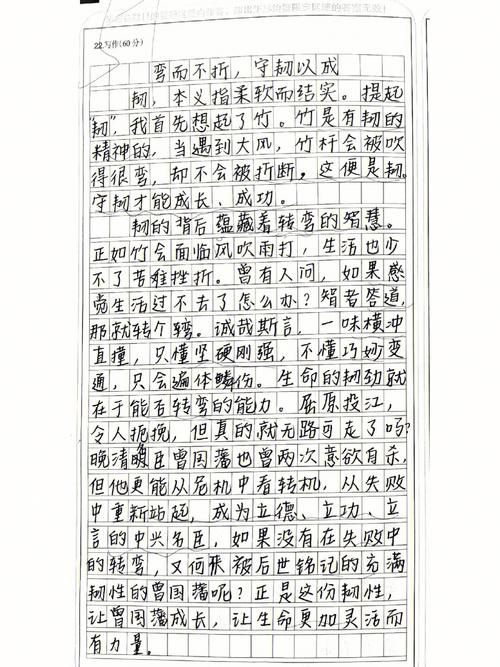 22.写作(60分)
弯而不折,守韧以成
韧,本义指柔软而结实。提起
“韧”,我首先想起了竹。竹是有韧的
精神的,当遇到大风,竹杆会被吹
得很弯,却不会被折断。这便是韧。
守韧才能成长、成功。
韧的背后蕴藏着转弯的智慧。
正如竹会面临风吹雨打,生活也少
不了苦难挫折。曾有人问,如果感
觉生活过不去了怎么办?智者答道,
那就转个弯。诚哉斯言,一味横冲
直撞,只懂坚硬刚强,不懂巧妙变
通,只会遍体鳞伤。生命的韧劲就
在于能否转弯的能力。屈原投江,
令人扼挽,但真的就无路可走了吗?
晚清臣曾国藩也曾两次意欲自杀,
但他更能从危机中看转机,从失败
中重新站起,成为立德、立功、立
言的中兴名臣,如果没有在失败中
的转弯,又何来被后世铭记的充满
韧性的曾国藩呢?正是这份韧性,
让曾国藩成长,让生命更加灵活而
有力量。